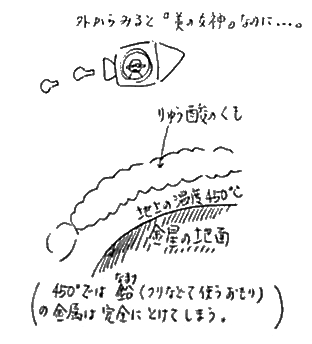 外からみると『美の女神』なのに…。
りゅう酸のくも
地上の温度450℃
金星の地面
450°では鉛(ツリなどで使うおもり)
なまり
の金属は完全にとけてしまう。